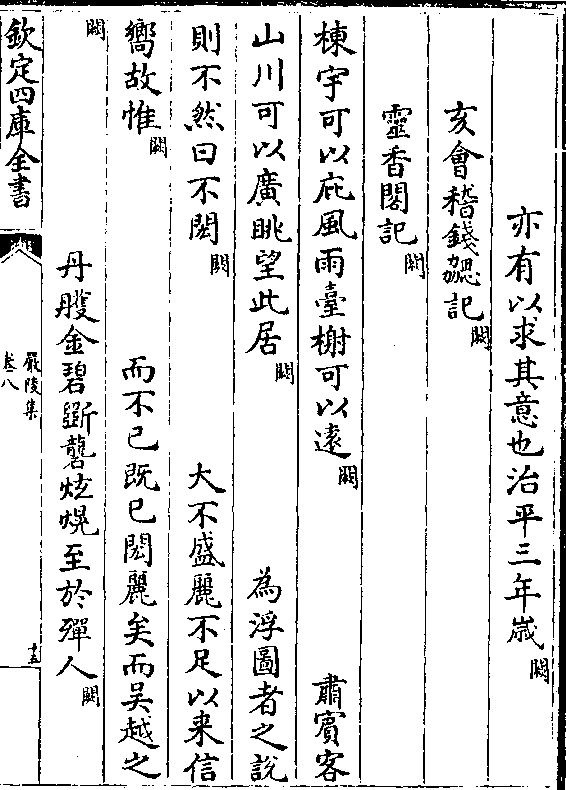 亦有以求其意也治平三年歲闕
亥會稽錢勰記闕
靈香閣記闕
棟宇可以庇風雨臺榭可以遠闕 肅賓客
山川可以廣眺望此居闕 為浮圖者之說
則不然曰不閎闕 大不盛麗不足以来信
嚮故惟闕 而不已既已閎麗矣而吴越之
闕 丹雘金碧斵礱炫熀至於殫人闕
欽定四庫全書
嚴陵集
卷八
十五